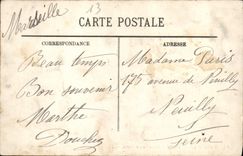 Marseille
13
CARTE POSTALE
CORRESPONDANCE
ADRESSE
Beau temps
Bon souvenir
Marthe
Madame Paris
175 avenue de Neuilly
Neuilly
Seine